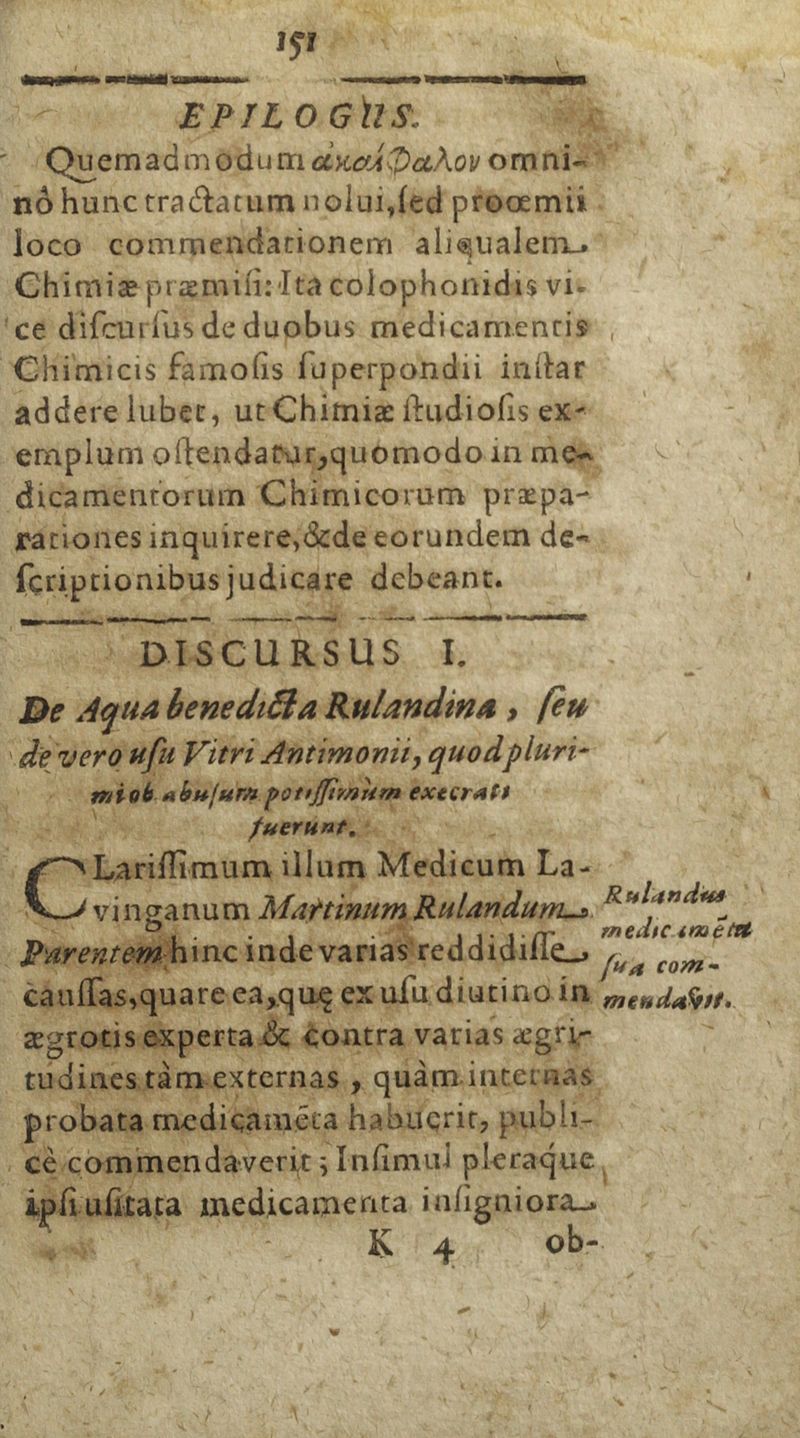 151
EPILOGUS.
Quemadmodum ἀκαίφαλον omni-
nò hunc tractatum nolui,ſed prooemii
loco commendationem aliqualem.
Chimiæ præmiſi: Ita colophonidis vi-
ce diſcurſus de duobus medicamentis
Chimicis famoſis ſuperpondii inſtar
addere lubet, ut Chimiæ ſtudioſis ex-
emplum oſtendatur,quomodo in me-
dicamentorum Chimicorum præpa-
rationes inquirere,&de eorundem de-
ſcriptionibus judicare debeant.
DISCURSUS I.
De Aqua benedicta Rulandina, ſeu
de vero uſu Vitri Antimonii, quod pluri-
mi ob abuſum potiſſimùm execrati
fuerunt.
CLariſſimum illum Medicum La-
vinganum Martinum Rulandum
Parentem hinc inde varias reddidiſſe
cauſſas,quare ea,quę ex uſu diutino in
ægrotis experta & contra varias ægri-
tudines tàm externas, quàm internas
probata medicamēta habuerit, publi-
cè commendaverit; Inſimul pleraque
ipſi uſitata medicamenta inſigniora
K 4 ob-
Rulandus
medicamēta
ſua com-
mendavit.